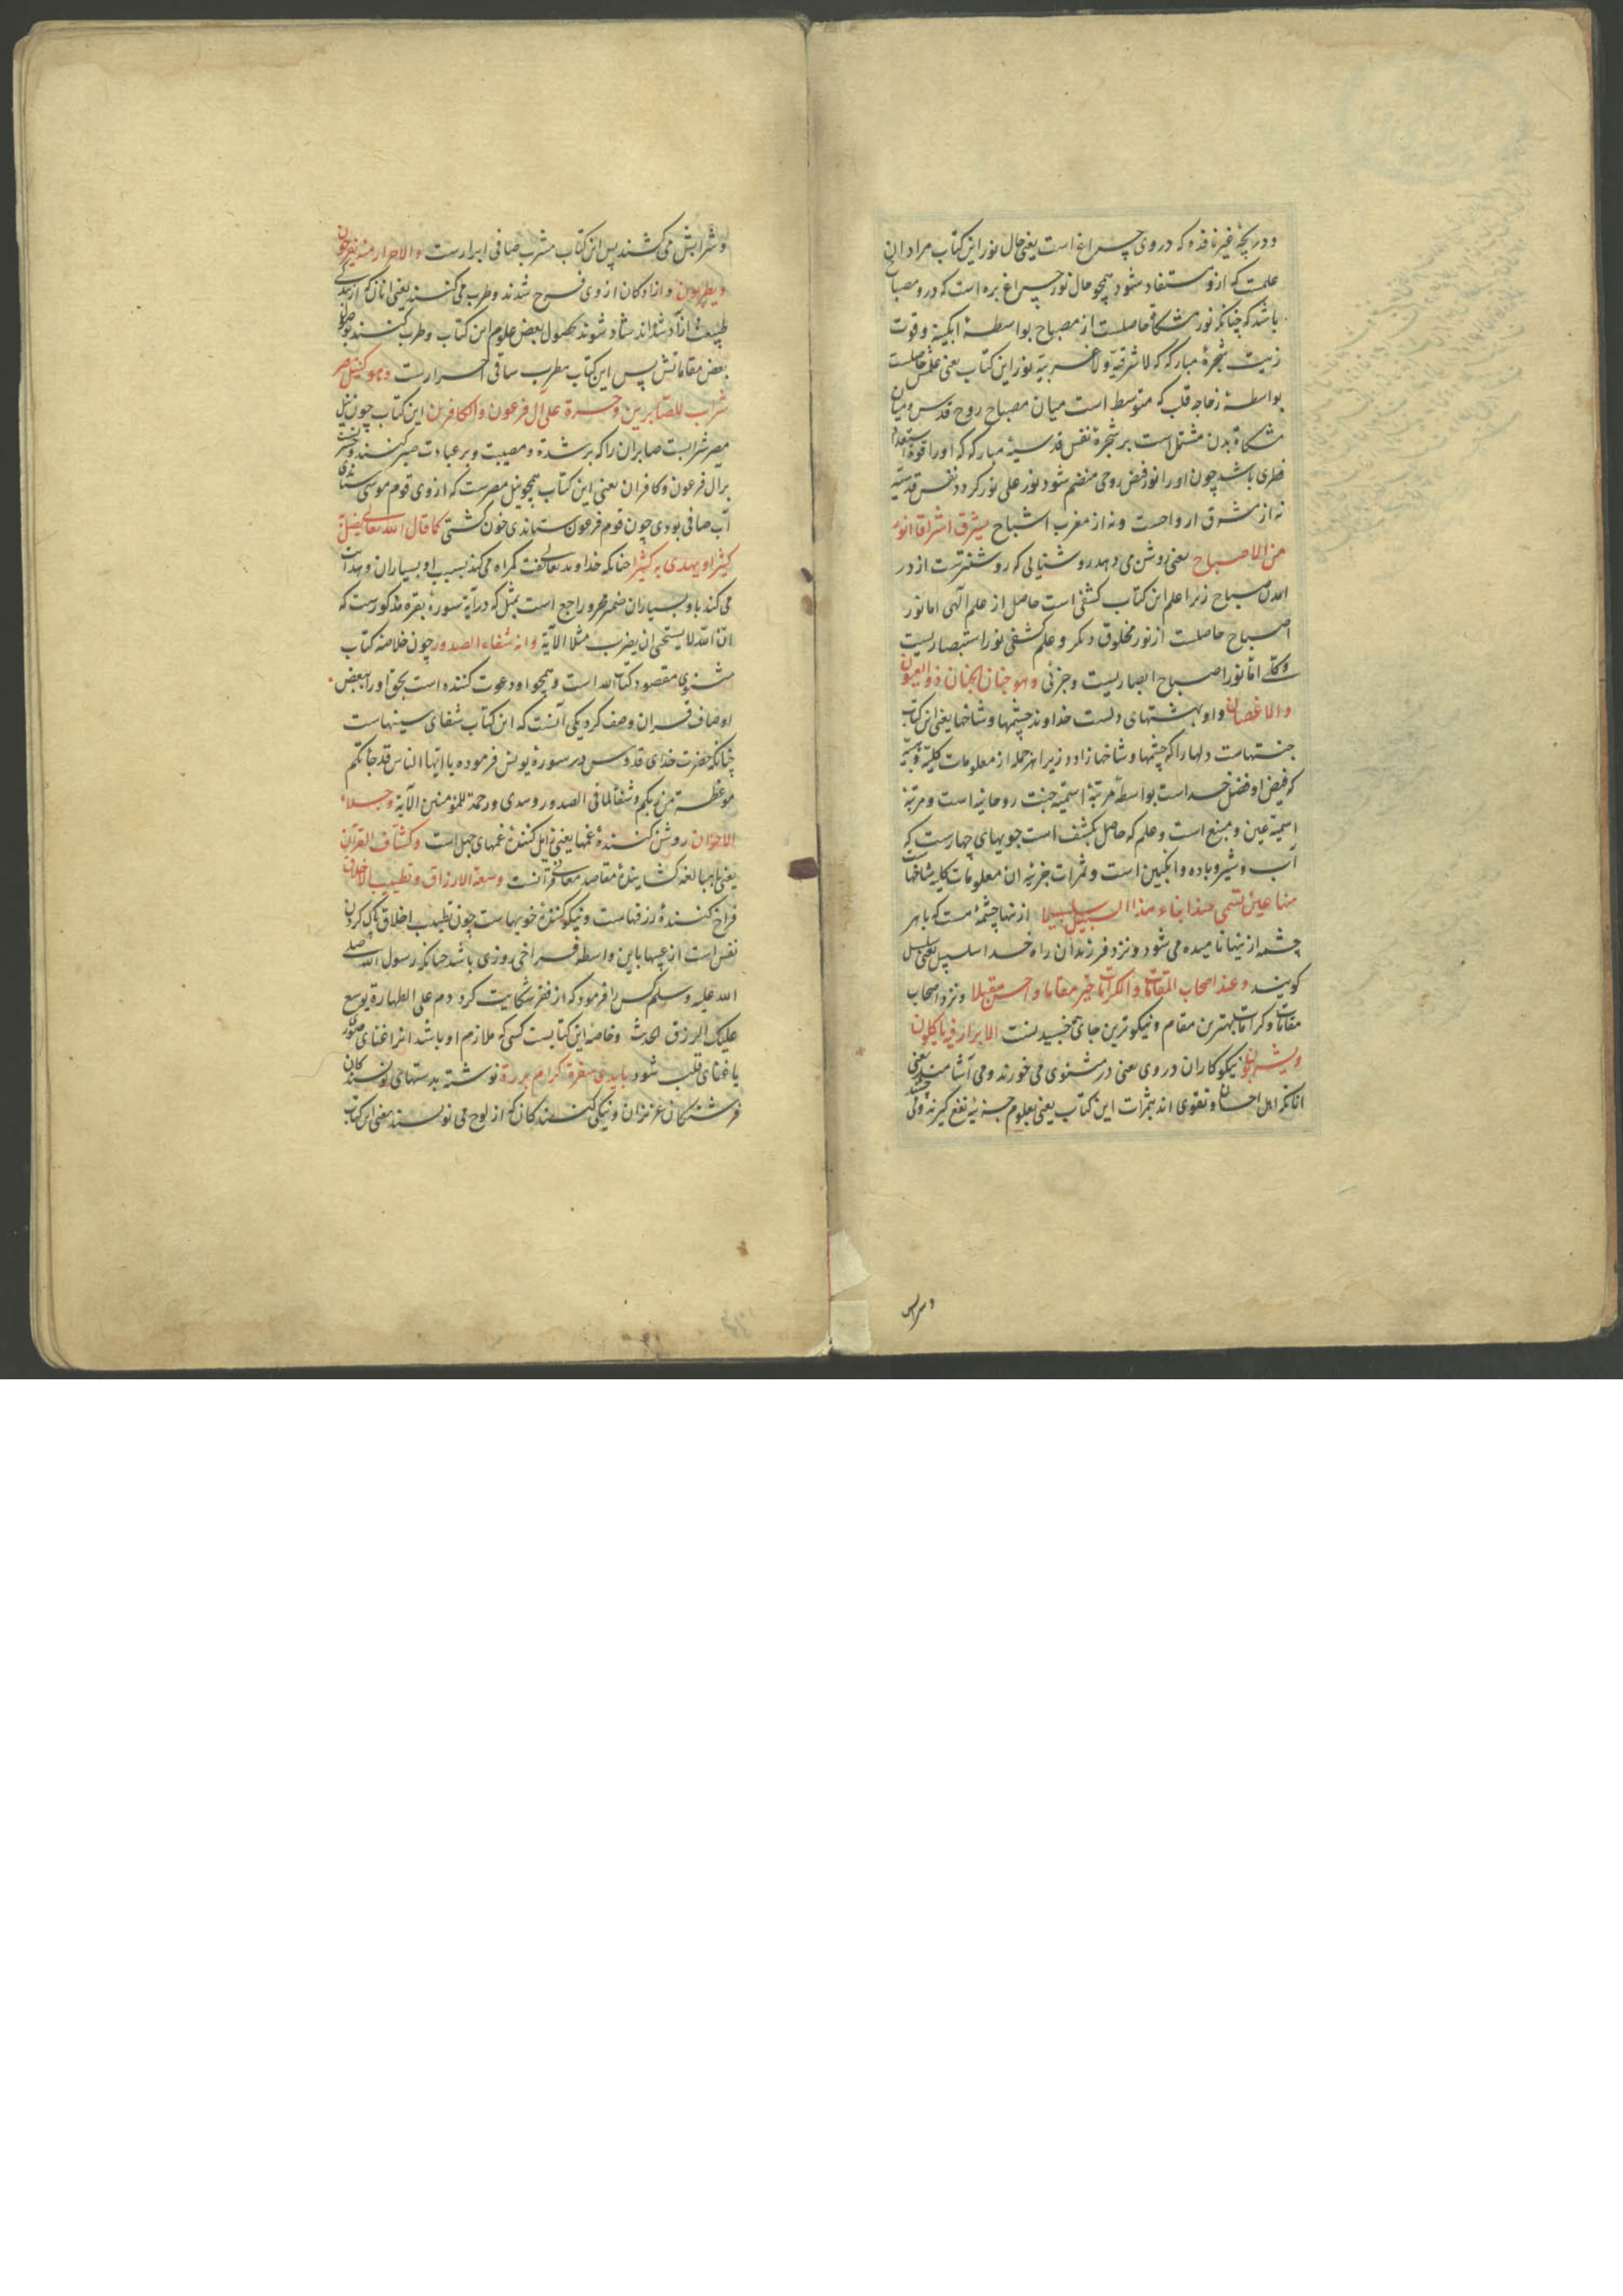 و دریچهٔ غیر نافذه که در وی چراغ است یعنی حال نور این کتاب مراد ازان
علمست که ازو مستفاد شود همچو حال نور چراغ بره است که درو مصباح
باشد که چنانکه نور مشکاة حاصلست از مصباح بواسطهٔ ابکینه و قوت
زیت شجرهٔ مبارکه که لا شرقیة و لا غربیة نور این کتاب یعنی علمش حاصلست
بواسطهٔ زجاجه قلب که متوسط است میان مصباح روح قدس و میان
مشکاة بدن مشتمل است بر شجرهٔ نفس قدسیهٔ مبارکه که او را قوة استعداد
فطری باشد چون او را نور فیض روحی منضم شود نور علی نور کردد نفس قدسیه
نه از مشرق ارواحست و نه از مغرب اشباح یشرق اشراقا انور
من الاصباح یعنی روشن می دهد روشنایی که روشنترست از در
امدن صباح زیرا علم این کتاب کشفی است حاصل از علم الهی اما نور
اصباح حاصلست از نور مخلوق دیکر و علم کشفی نور استبصاریست
و کلی اما نور اصباح ابصاریست و جزئی و هو جنان الجنان ذو العیون
والاغصان و او بهشتهای دلست خداوند چشمها و شاخها یعنی این کتاب
جنتهاست دلها را که چشمها و شاخها زاوود زیرا هر جمله از معلومات کلیه
که فیض او فضل خداست بواسطهٔ مرتبهٔ اسمیه جنت روحانیه است و مرتبهٔ
اسمیه عین و منبع است و علم که حاصل بکشف است جویهای چهارست که
آب و شیر و باده و انکبین است و ثمرات جزئیه ان معلومات کلیه شاخهاست
منها عین تسمی عند ابناء هذا السبیل سلسبیلا از نهتا چشمهٔ ست که باهر
چشمه از ینها نامیده می شود و نزد فرزندان راه خدا سلسبیل یعنی سلسبیل
کویند و عند اصحاب المقامات والکرامات خیر مقاما و احسن مقیلا و نزد اصحاب
مقامات و کرامات بهترین مقام و نیکوترین جای خسبیدنست الابرار فیه یاکلون
و یشربون نیکوکاران در وی یعنی در مثنوی می خورند و می آشامند یعنی
انانکه اهل احسان و تقوی اند بثمرات این کتاب یعنی بعلوم جزئیه نفع کیرند
و شرابش
و شرابش می کشند پس این کتاب مشرب صافی ابرارست والاحرار منه یفرحون
و یطربون و ازادکان از وی فرح شدند و طرب می کنند یعنی انان که از بندکی
طبیعت ازاد شده اند شاد شوند بحصول بعض علوم این کتاب و طرب کنند بوصول
بعض مقاماتش پس این کتاب مطرب ساقی احرارست و هو کنیل مصر
شراب للصابرین و حسرة علی آل فرعون والکافرین این کتاب چون نیل
مصر شرابست صابران را که بر شدة و مصیبت و بر عبادت صبر کنند و حسرتست
بر ال فرعون و کافران یعنی این کتاب همچو نیل مصرست که از وی قوم موسی ستاندی
آب صافی بودی چون قوم فرعون ستاندی خون کشتی کما قال الله تعالی یضل به
کثیرا و یهدی به کثیرا چنانکه خداوند تعالی کفت کمراه می کند بسبب او بسیاران و هدایت
می کند باو بسیاران ضمیر مجرور راجع است بمثل که در آیة سورهٔ بقره مذکورست که
ان الله لا یستحیی ان یضرب مثلا الآیة و انه شفاء الصدور چون خلاصه کتاب
مثنوی مقصود کتاب الله است و همچو او دعوت کننده است بحق او را ببعض
اوصاف قران وصف کرد یکی آنست که این کتاب شفای سینهاست
چنانکه حضرت خدای قدوس در سورهٔ یونس فرموده یا ایها الناس قد جاءتکم
موعظة من ربکم و شفاء لما فی الصدور و هدی و رحمة للمؤمنین الآیة و جلاء
الاحزان روشن کنندهٔ غمها یعنی زایل کنندهٔ غمهای جهل است و کشاف القرآن
یعنی با مبالغه کشایندهٔ مقاصد معانی قرآنست و سعة الارزاق و تطییب الاخلاق
فراخ کنندهٔ رزقهاست و نیکو کنندهٔ خویهاست چون تطییب اخلاق پاک کردن
نفس است از عیبها باین واسطه فراخی روزی باشد چنانکه رسول الله صلی
الله علیه و سلم کس را فرمود که از فقر شکایت کرد دم علی الطهارة یوسع
علیک الرزق الحدیث و خاصه این کتابست کسی که ملازم او باشد اثر اغنای صوری
یا غنای قلب شود بایدی سفرة کرام بررة نوشته بدستهای نویسندکان
فرشتکان عزیزان و نیکی کنندکان که از لوح می نویسند یعنی این کتاب